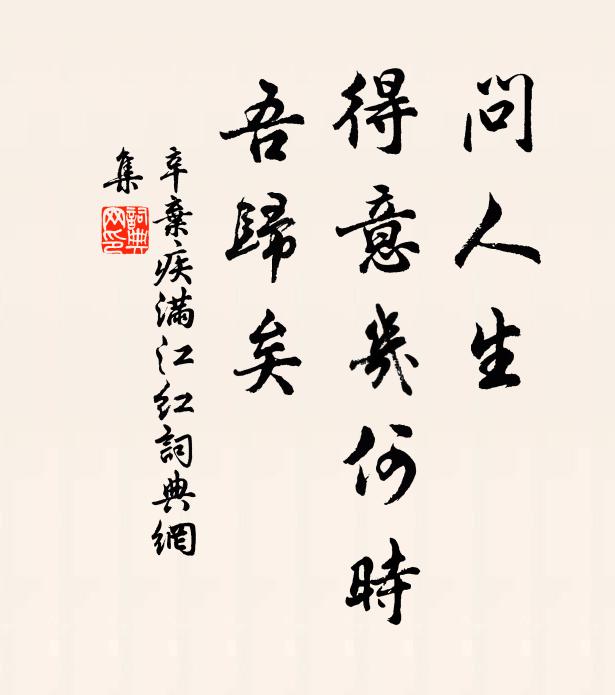 問人生
得意幾何時
吾歸矣
辛棄疾滿江紅詞典網
集
詞典
网印